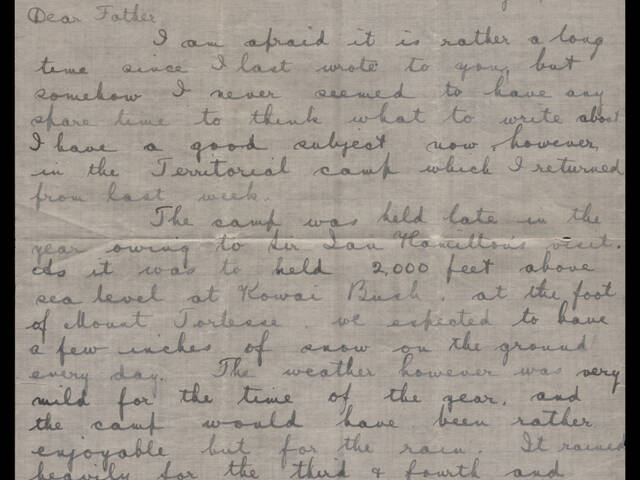 Dear Father,
I am afraid it is rather a long
time since I last wrote to you, but
somehow I never seemed to have any
spare time to think what to write about
I have a good subject now, however,
in the Territorial camp which I returned
from last week.
The camp was held late in the
year owing to Sir Ian Hamilton's visit.
As it was to held 2,000 feet above
sea level at Kowai Bush, at the foot
of Mount Torlesse we expected to have
a few inches of snow on the ground
every day. The weather however was very
mild for the time of the year, and
the camp would have been rather
enjoyable but for the rain. It rained
heavily for the third & fourth and